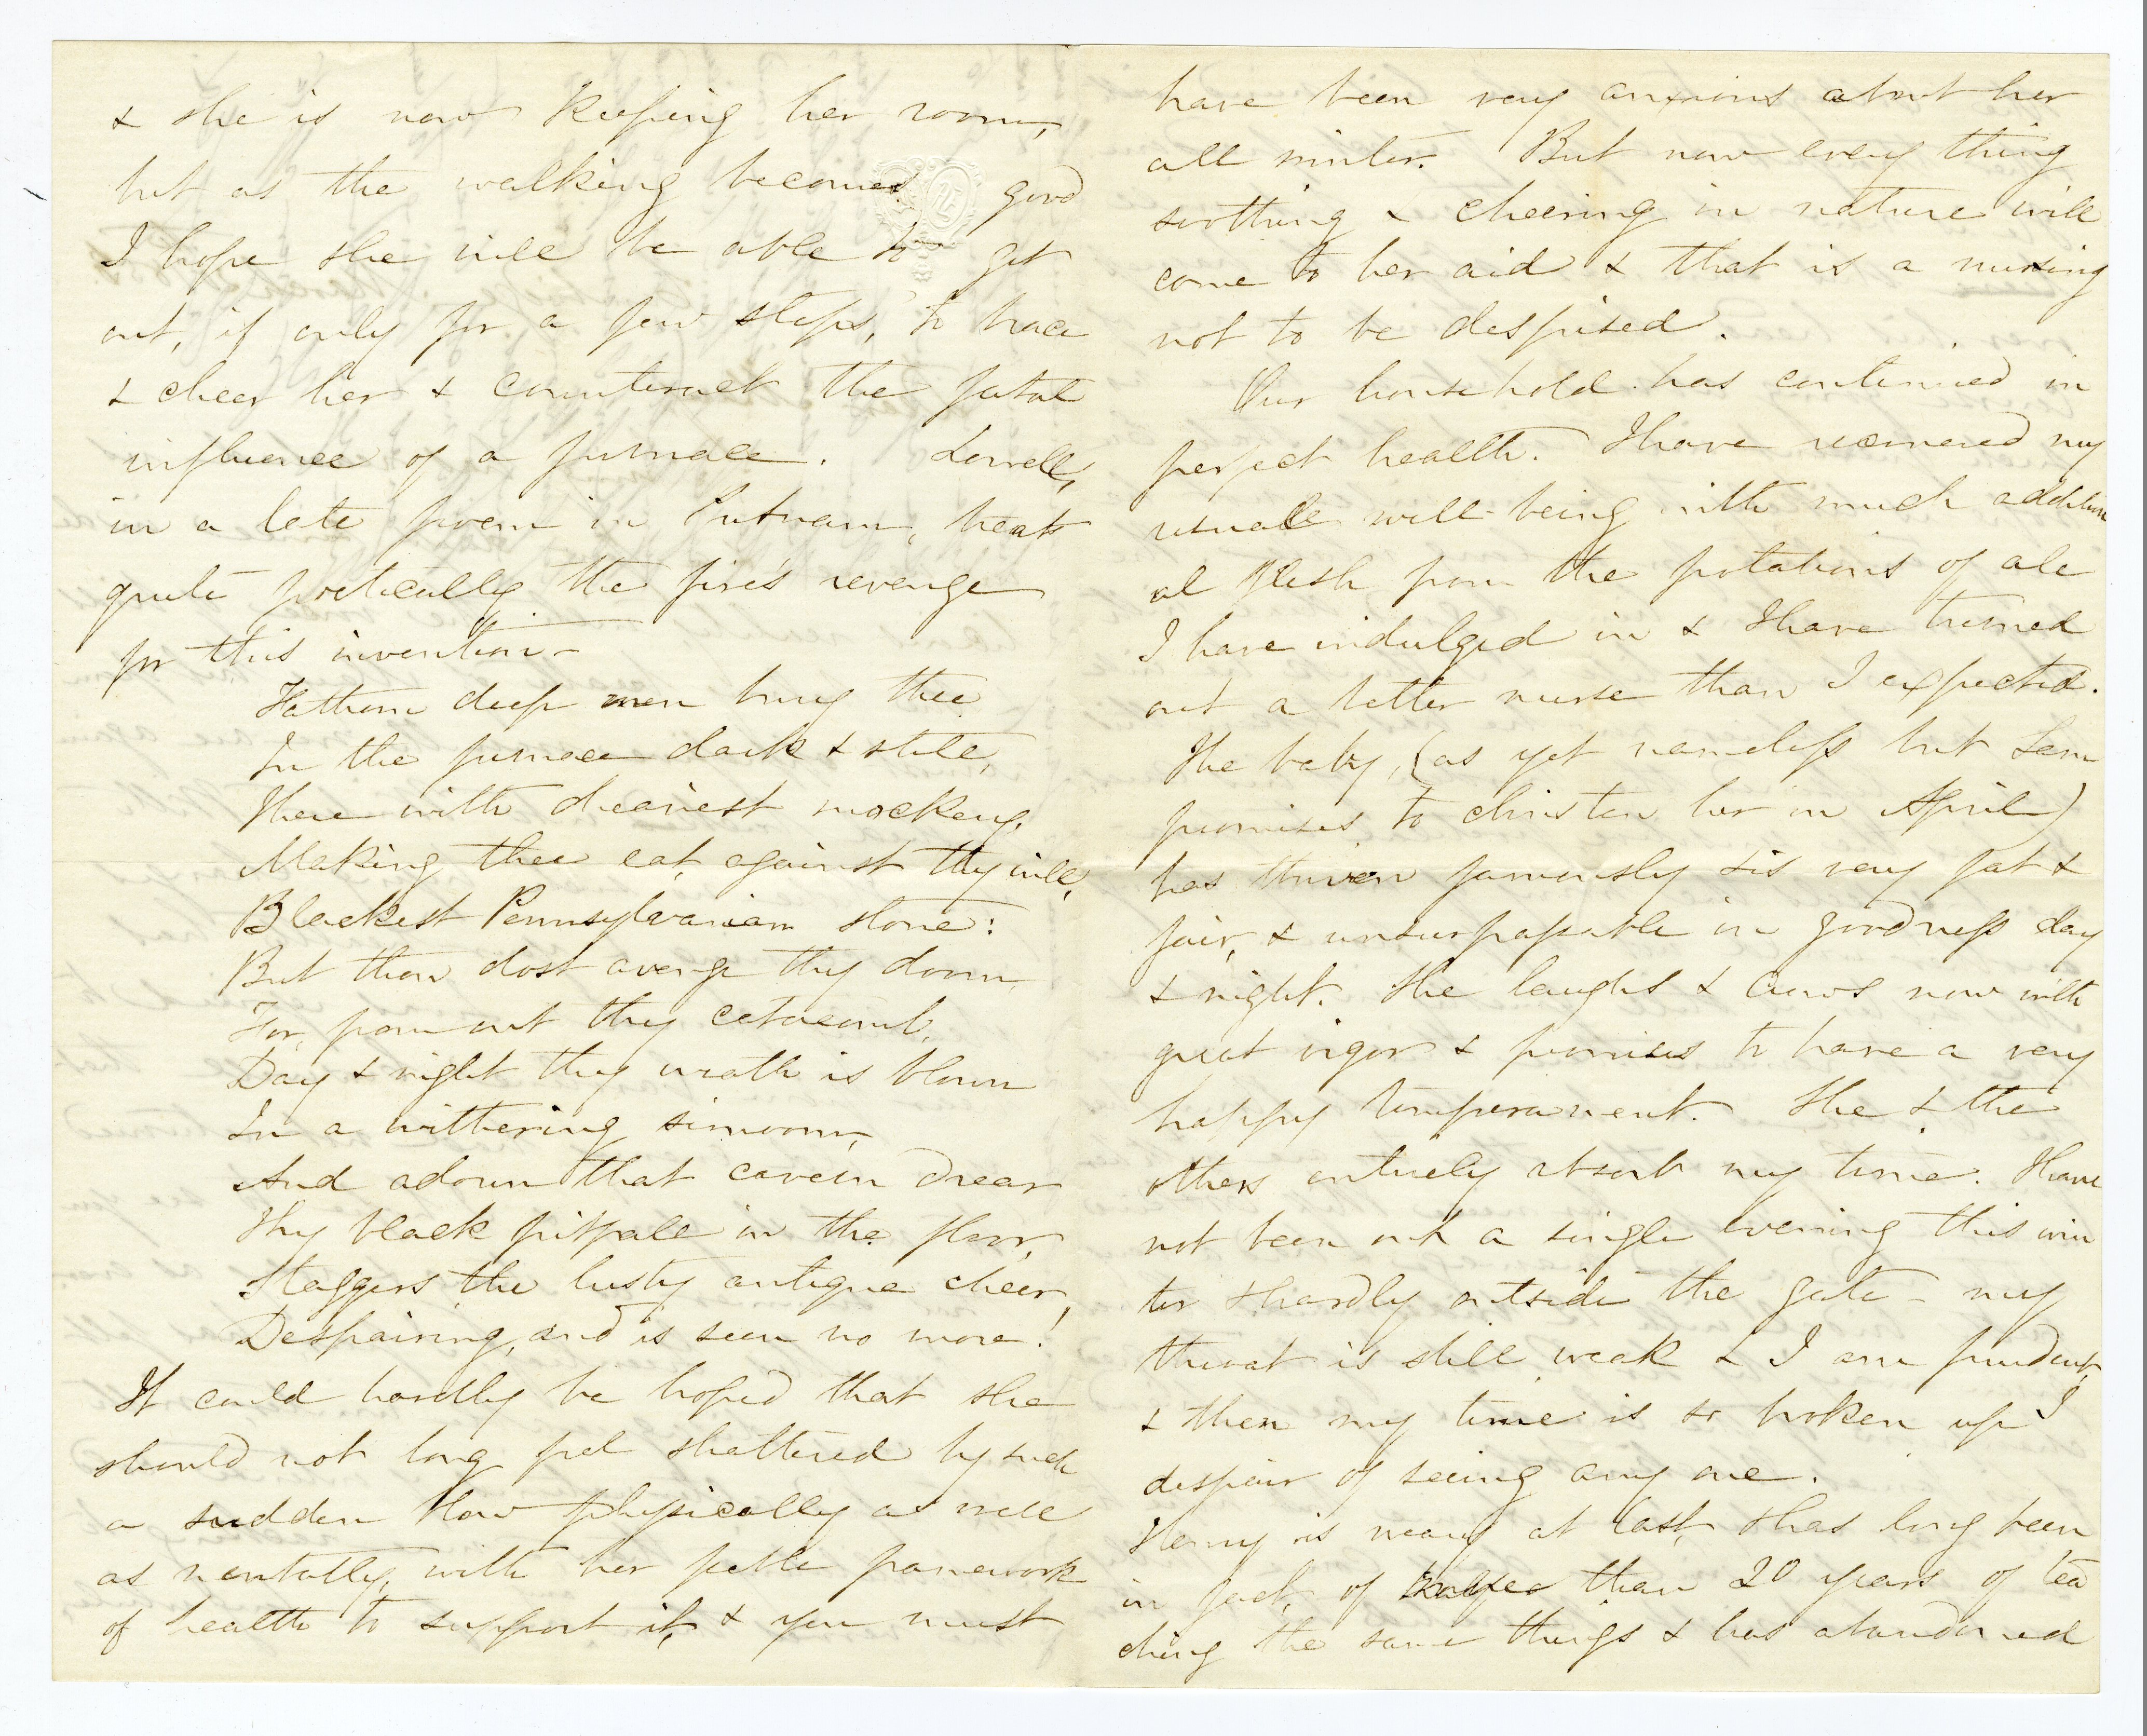 & she is now keeping her room,
but as the walking becomes good
I hope she will be able to get
out, if only for a few steps, to brace
& cheer her & counteract the fatal
influence of a furnace. Lowell,
in a late poem in Putnam, treats
quite poetically the fire's revenge
for this invention—
Fathom deep men bury thee
In the furnace dark & still,
There with dreariest mockery,
Making thee eat, against thy will,
Blackest Pennsylvanian stone:
But thou dost avenge thy doom
For, from out thy catacomb,
Day & night thy wrath is blown
In a withering simoom,
And adown that cavern drear
Thy black pitfall in the floor,
Staggers the lusty antique cheer,
Despairing, and is seen no more!
It could hardly be hoped that she
should not long feel shattered by such
a sudden blow physically as well
as mentally, with her feeble framework
of health to support it, & you must
have been very anxious about her
all winter. But now every thing
soothing & cheering in nature will
come to her aid & that is a nursing
not to be despised.
Our household has continued in
perfect health. I have recovered my
usual well-being with much addition
al flesh from the potations of ale
I have indulged in & I have turned
out a better nurse than I expected.
The baby, (as yet nameless but Sam
promises to christen her in April)
has thriven famously & is very fat &
fair, & unsurpassable in goodness day
& night. She laughs & crows now with
great vigor & promises to have a very
happy temperament. She & the
others entirely absorb my time. I have
not been out a single evening this win
ter & hardly outside the gate – my
throat is still weak & I am prudent,
& then my time is so broken up I
despair of seeing any one.
Henry is weary at last, & has long been
in fact, of than 20 years of tea
ching the same things & has abandoned